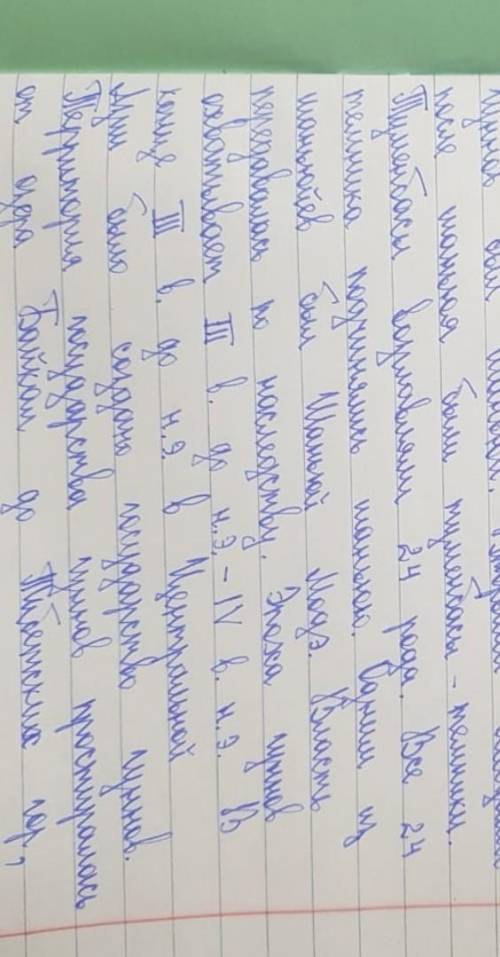 после шаньюя были туменбасы - темники.
Туменбасы возглавляли 24 рода. Все 24
темника подчинялись шаньюю. Одним из
шаньюев был Шаньюй Модэ. Власть
передавалась по наследству. Эпоха гуннов
охватывает III в. до н.э. - IV в. н.э. В
конце III в. до н.э. в Центральной
Азии было создано государство гуннов.
Территория государства гуннов простиралась
от озера Байкал до Тибетских гор,